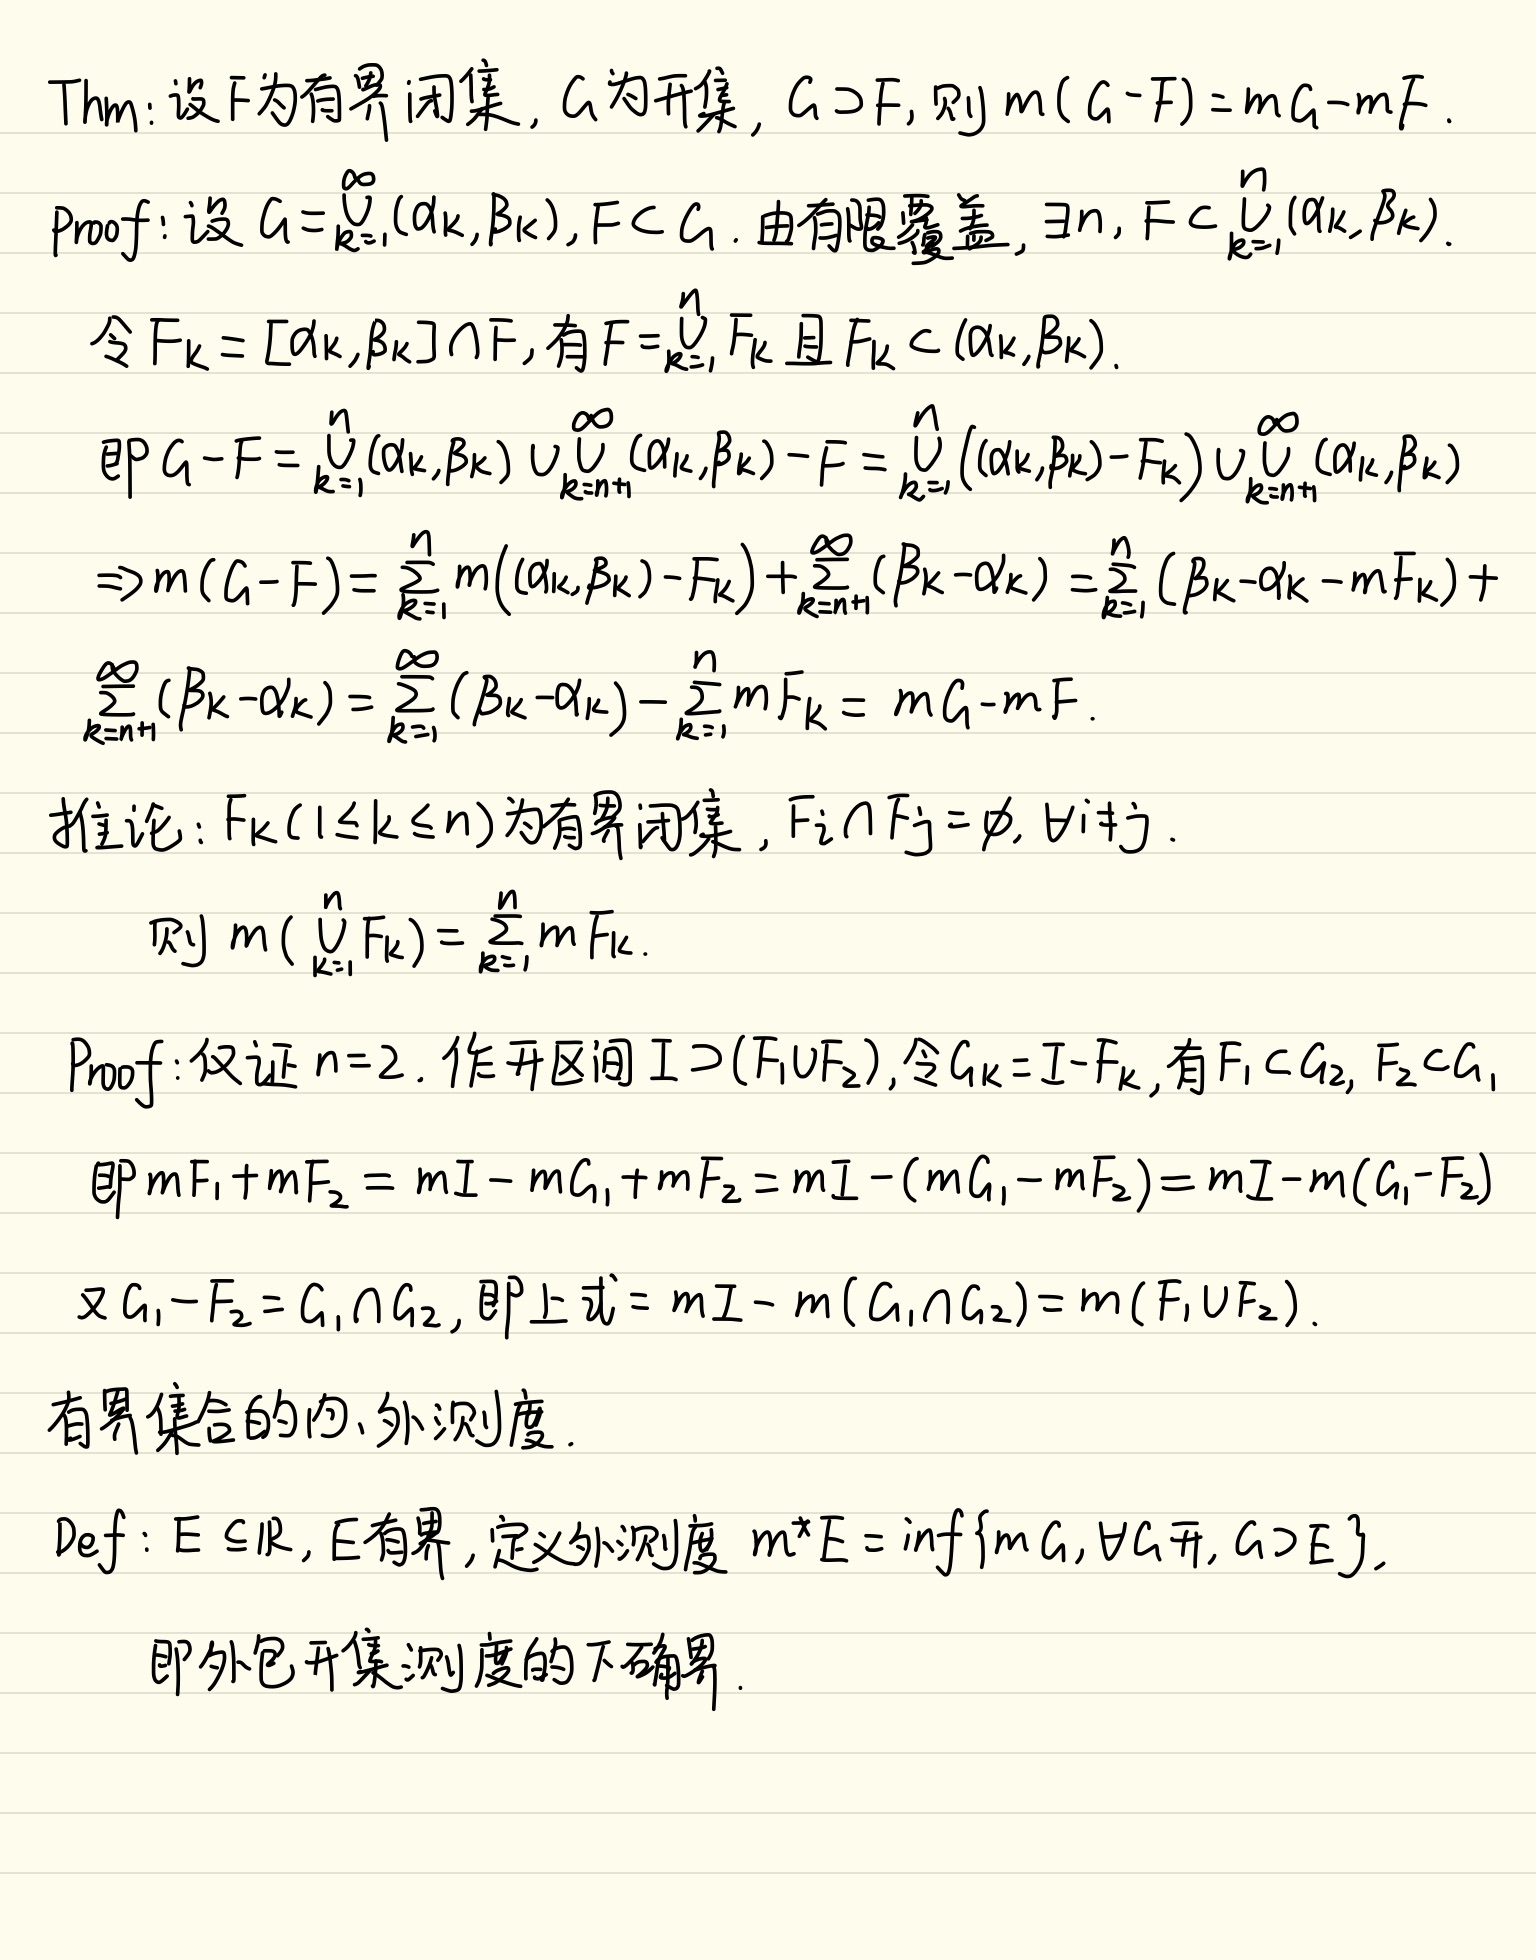 Thm: 设F为有界闭集, G为开集, G⊃F, 则 m(G-F)=mG-mF.
Proof: 设 G=⋃_{k=1}^{∞}(α_k,β_k), F⊂G. 由有限覆盖, ∃n, F⊂⋃_{k=1}^{n}(α_k,β_k).
令 F_k=[α_k,β_k]∩F, 有F=⋃_{k=1}^{n}F_k 且 F_k⊂(α_k,β_k).
即 G-F=⋃_{k=1}^{n}(α_k,β_k)∪⋃_{k=n+1}^{∞}(α_k,β_k)-F=⋃_{k=1}^{n}((α_k,β_k)-F_k)∪⋃_{k=n+1}^{∞}(α_k,β_k)
⇒m(G-F)=∑_{k=1}^{n}m((α_k,β_k)-F_k)+∑_{k=n+1}^{∞}(β_k-α_k)=∑_{k=1}^{n}(β_k-α_k-mF_k)+
∑_{k=n+1}^{∞}(β_k-α_k)=∑_{k=1}^{∞}(β_k-α_k)-∑_{k=1}^{n}mF_k=mG-mF.
推论: F_k(1≤k≤n)为有界闭集, F_i∩F_j=∅, ∀i≠j.
则 m(⋃_{k=1}^{n}F_k)=∑_{k=1}^{n}mF_k.
Proof: 仅证 n=2. 作开区间 I⊃(F₁∪F₂), 令G_k=I-F_k, 有F₁⊂G₂, F₂⊂G₁
即 mF₁+mF₂=mI-mG₁+mF₂=mI-(mG₁-mF₂)=mI-m(G₁-F₂)
又 G₁-F₂=G₁∩G₂, 即上式=mI-m(G₁∩G₂)=m(F₁∪F₂).
有界集合的内、外测度.
Def: E⊆ℝ, E有界, 定义外测度 m*E=inf{mG, ∀G开, G⊃E},
即外包开集测度的下确界.